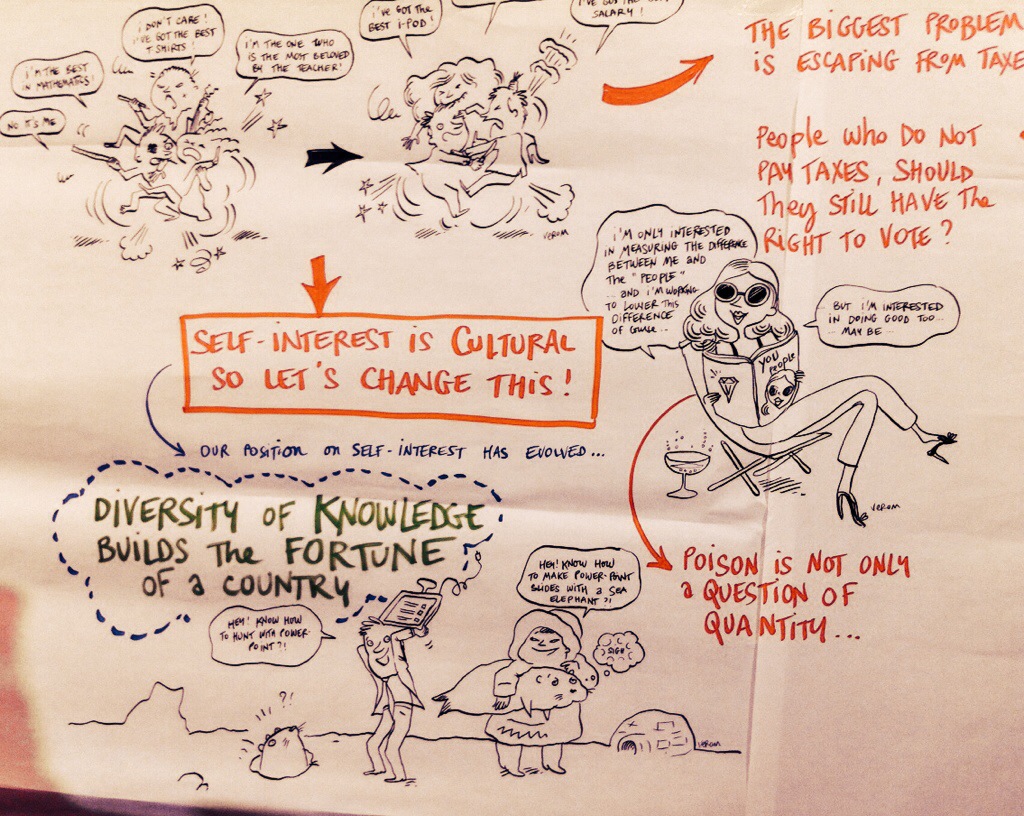 I DON'T CARE!
I'VE GOT THE BEST
T-SHIRTS!
I'M THE BEST
IN MATHEMATICS!
I'M THE ONE WHO
IS THE MOST BELOVED
BY THE TEACHER!
NO IT'S ME
I'VE GOT THE
BEST I-POD!
I'VE GOT THE
SALARY!
VEROM
THE BIGGEST PROBLEM
iS ESCAPING FROM TAXE
PEOPLE WHO DO NOT
PAY TAXES, SHOULD
THEY STILL HAVE THE
RIGHT TO VOTE?
I'M ONLY INTERESTED
IN MEASURING THE DIFFERENCE
BETWEEN ME AND
THE "PEOPLE"
... AND I'M WORKING
TO LOWER THIS
DIFFERENCE
OF COURSE...
BUT I'M INTERESTED
IN DOING GOOD TOO...
MAY BE...
YOU
PEOPLE
VEROM
SELF-INTEREST iS CULTURAL
SO LET'S CHANGE THIS!
OUR POSITION ON SELF-INTEREST HAS EVOLVED...
DIVERSITY OF KNOWLEDGE
BUILDS THE FORTUNE
OF a COUNTRY
POISON iS NOT ONLY
a QUESTION OF
QUANTITY...
HEY! KNOW HOW
TO HUNT WITH POWER-
POINT?!
HEY! KNOW HOW
TO MAKE POWER-POINT
SLIDES WITH A SEA
ELEPHANT?!
SIGH
?!
VEROM